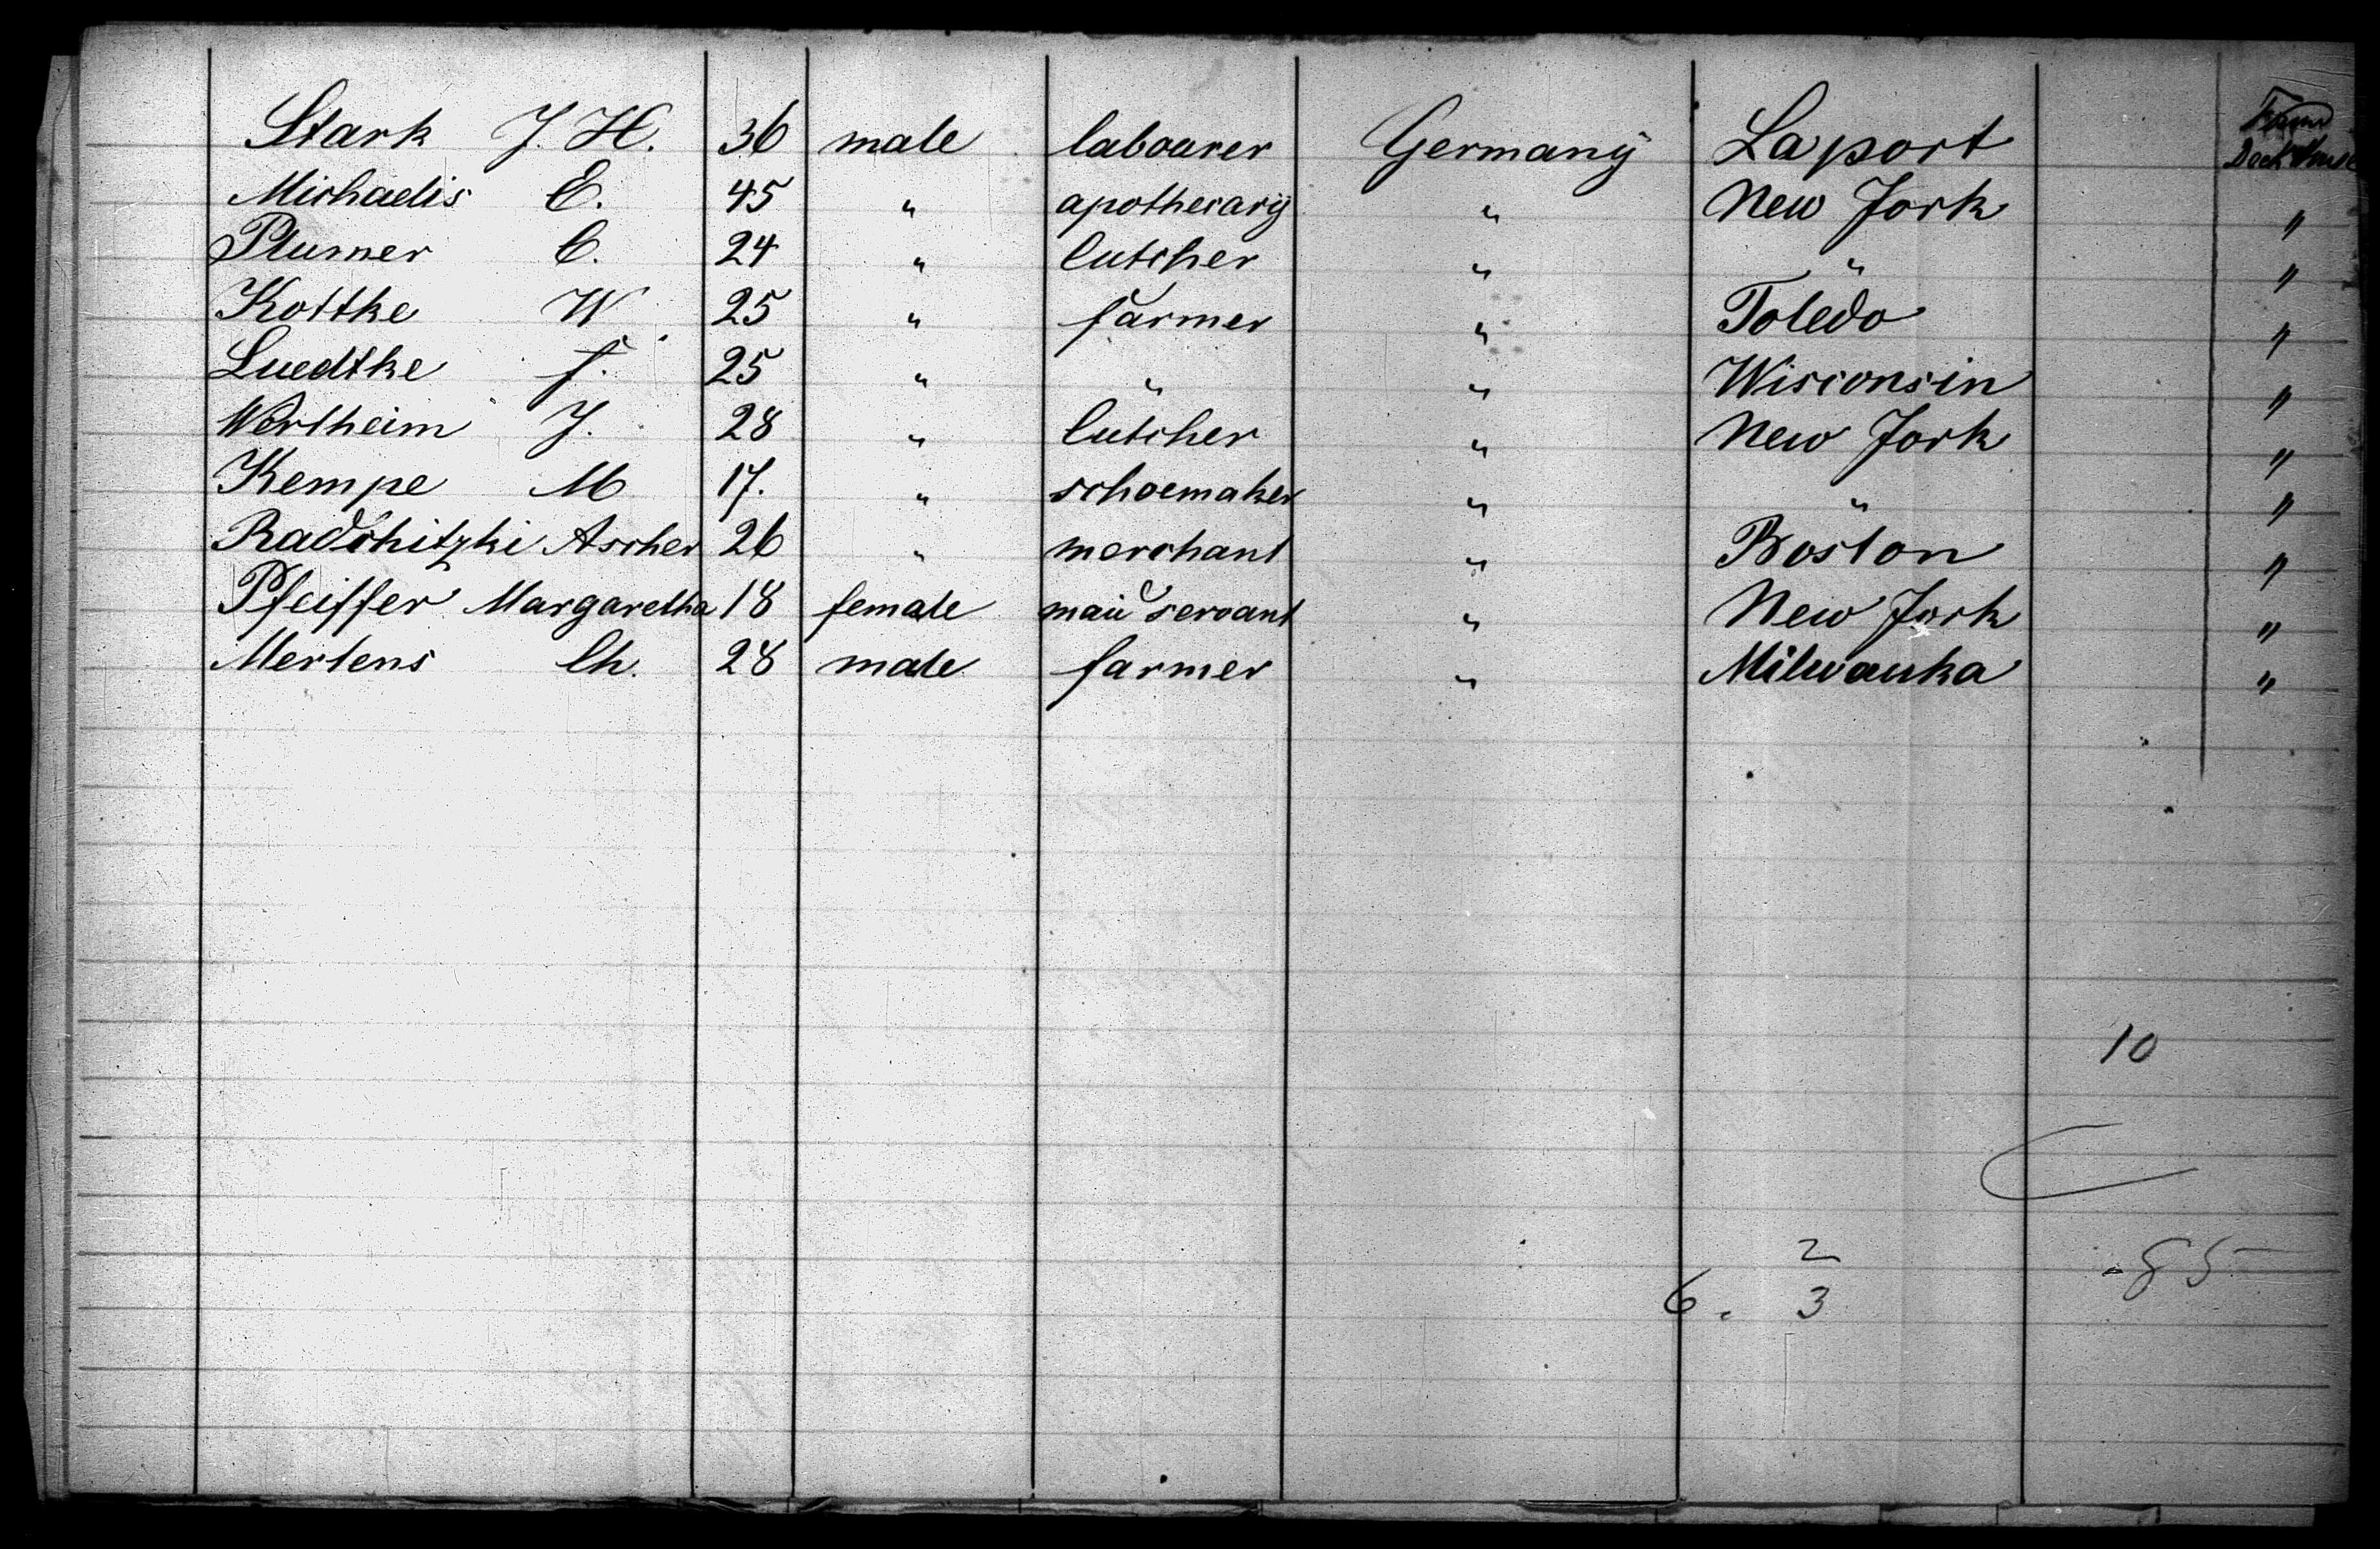 Stark J. H. 36 male labourer Germany Laport Deck House
Michaelis E. 45 " apothecary " New York "
Plumer C. 24 " butcher " " "
Kottke W. 25 " farmer " Toledo "
Luedtke F. 25 " " " Wisconsin "
Wertheim J. 28 " butcher " New York "
Kempe M 17. " schoemaker " " "
Radschitzki Ascher 26 " merchant " Boston "
Pfeiffer Margaretha 18 female maid servant " New York "
Mertens Ch. 28 male farmer " Milwauka "
10
2
85
6. 3